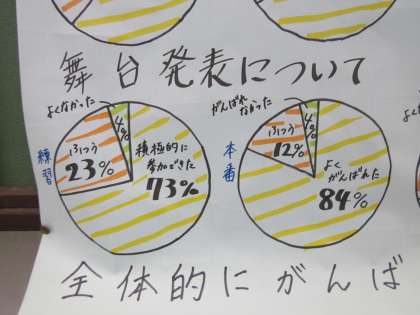 舞台発表について
よくなかった
4%
ふつう
23%
積極的に
参加できた
73%
練習
がんばれ
なかった
4%
ふつう
12%
よく
がんばれた
84%
本番
全体的にがんば